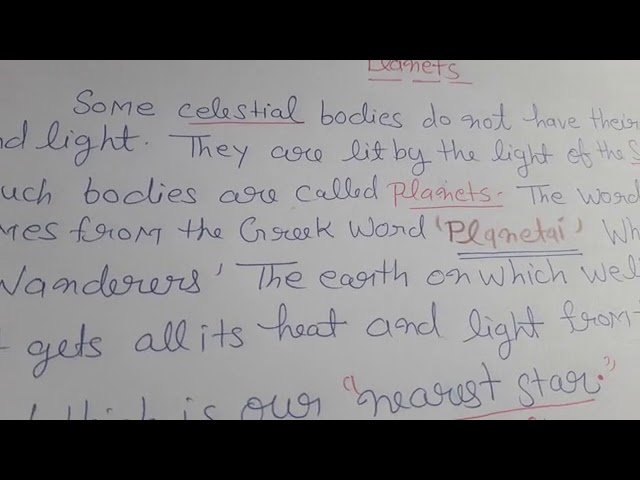 Planets
Some celestial bodies do not have their
nd light. They are lit by the light of the S
uch bodies are called Planets. The word
mes from the Greek word 'Planetai' Wh
Wanderers' The earth on which we li
t gets all its heat and light from
is our "nearest star."